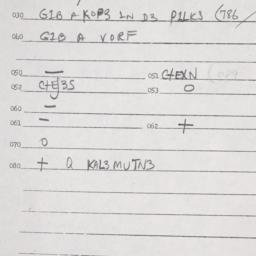 030 G1B A KOP3 LN D3 P1LKS (786/
040 G2B A VORF
050 — 051 C+EXN
052 C+E3S 053 O
060 –
061 – 062 +
070 O
080 + Q KAL3MUTN3